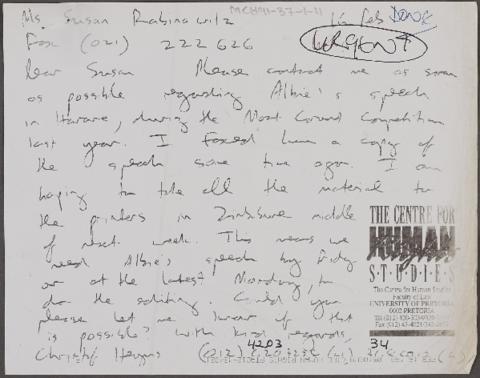 MCH91-37-1-11
Ms. Susan Rabinowitz
Feb DONE
Fax (021) 222626
URGENT
Dear Susan Please contact me as soon
as possible regarding Albie's speech
in Harare, during the Moot Court Competition
last year. I faxed him a copy of
the speech some time ago. I am
hoping to take all the material to
the printers in Zimbabwe middle
of next week. This means we
need Albie's speech by Friday
or at the latest Monday, to
do the editing. Could you
please let me know if that
is possible? with kind regards,
Christof Heyns (012)
4203
34
THE CENTRE FOR
HUMAN
Rights
STUDIES
The Centre for Human Rights Studies
Faculty of Law
UNIVERSITY OF PRETORIA
0002 PRETORIA